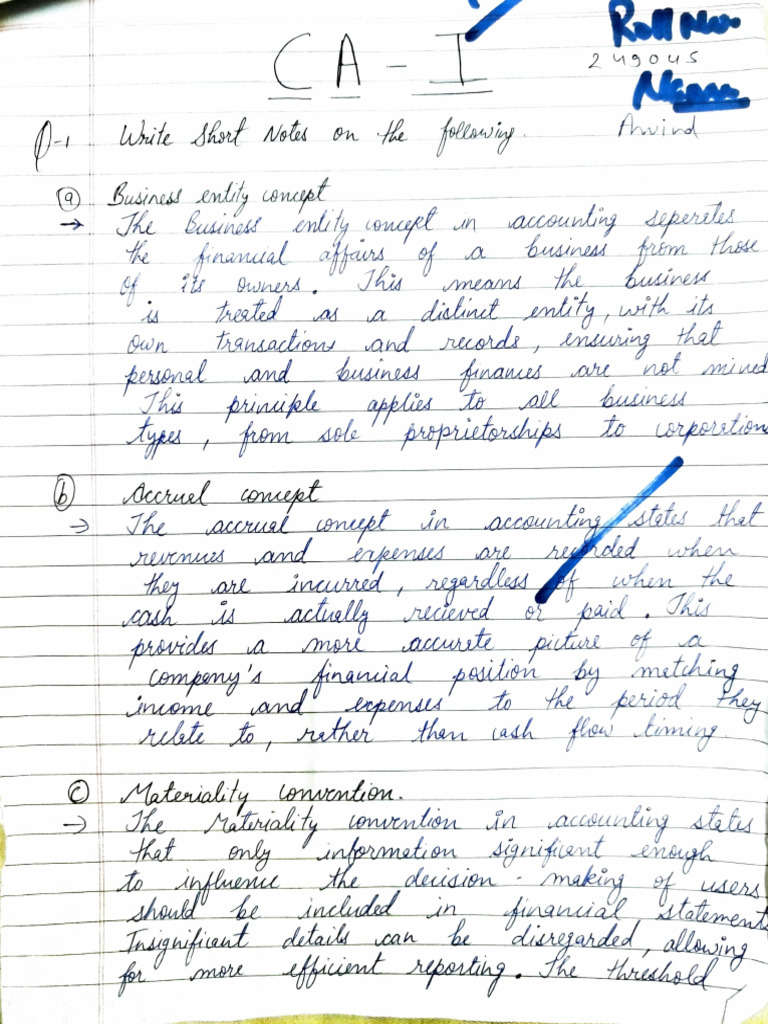 CA - I
Roll No.
249045
Name
Arvind
Q-1 Write Short Notes on the following.
(a) Business entity concept
→ The Business entity concept in accounting seperates
the financial affairs of a business from those
of its owners. This means the business
is treated as a distinct entity, with its
own transactions and records, ensuring that
personal and business finances are not mixed
This principle applies to all business
types, from sole proprietorships to corporations
(b) Accrual concept
→ The accrual concept in accounting states that
revenues and expenses are recorded when
they are incurred, regardless of when the
cash is actually recieved or paid. This
provides a more accurate picture of a
company's financial position by matching
income and expenses to the period they
relate to, rather than cash flow timing.
(c) Materiality convention.
→ The Materiality convention in accounting states
that only information significant enough
to influence the decision-making of users
should be included in financial statements
Insignificant details can be disregarded, allowing
for more efficient reporting. The threshold